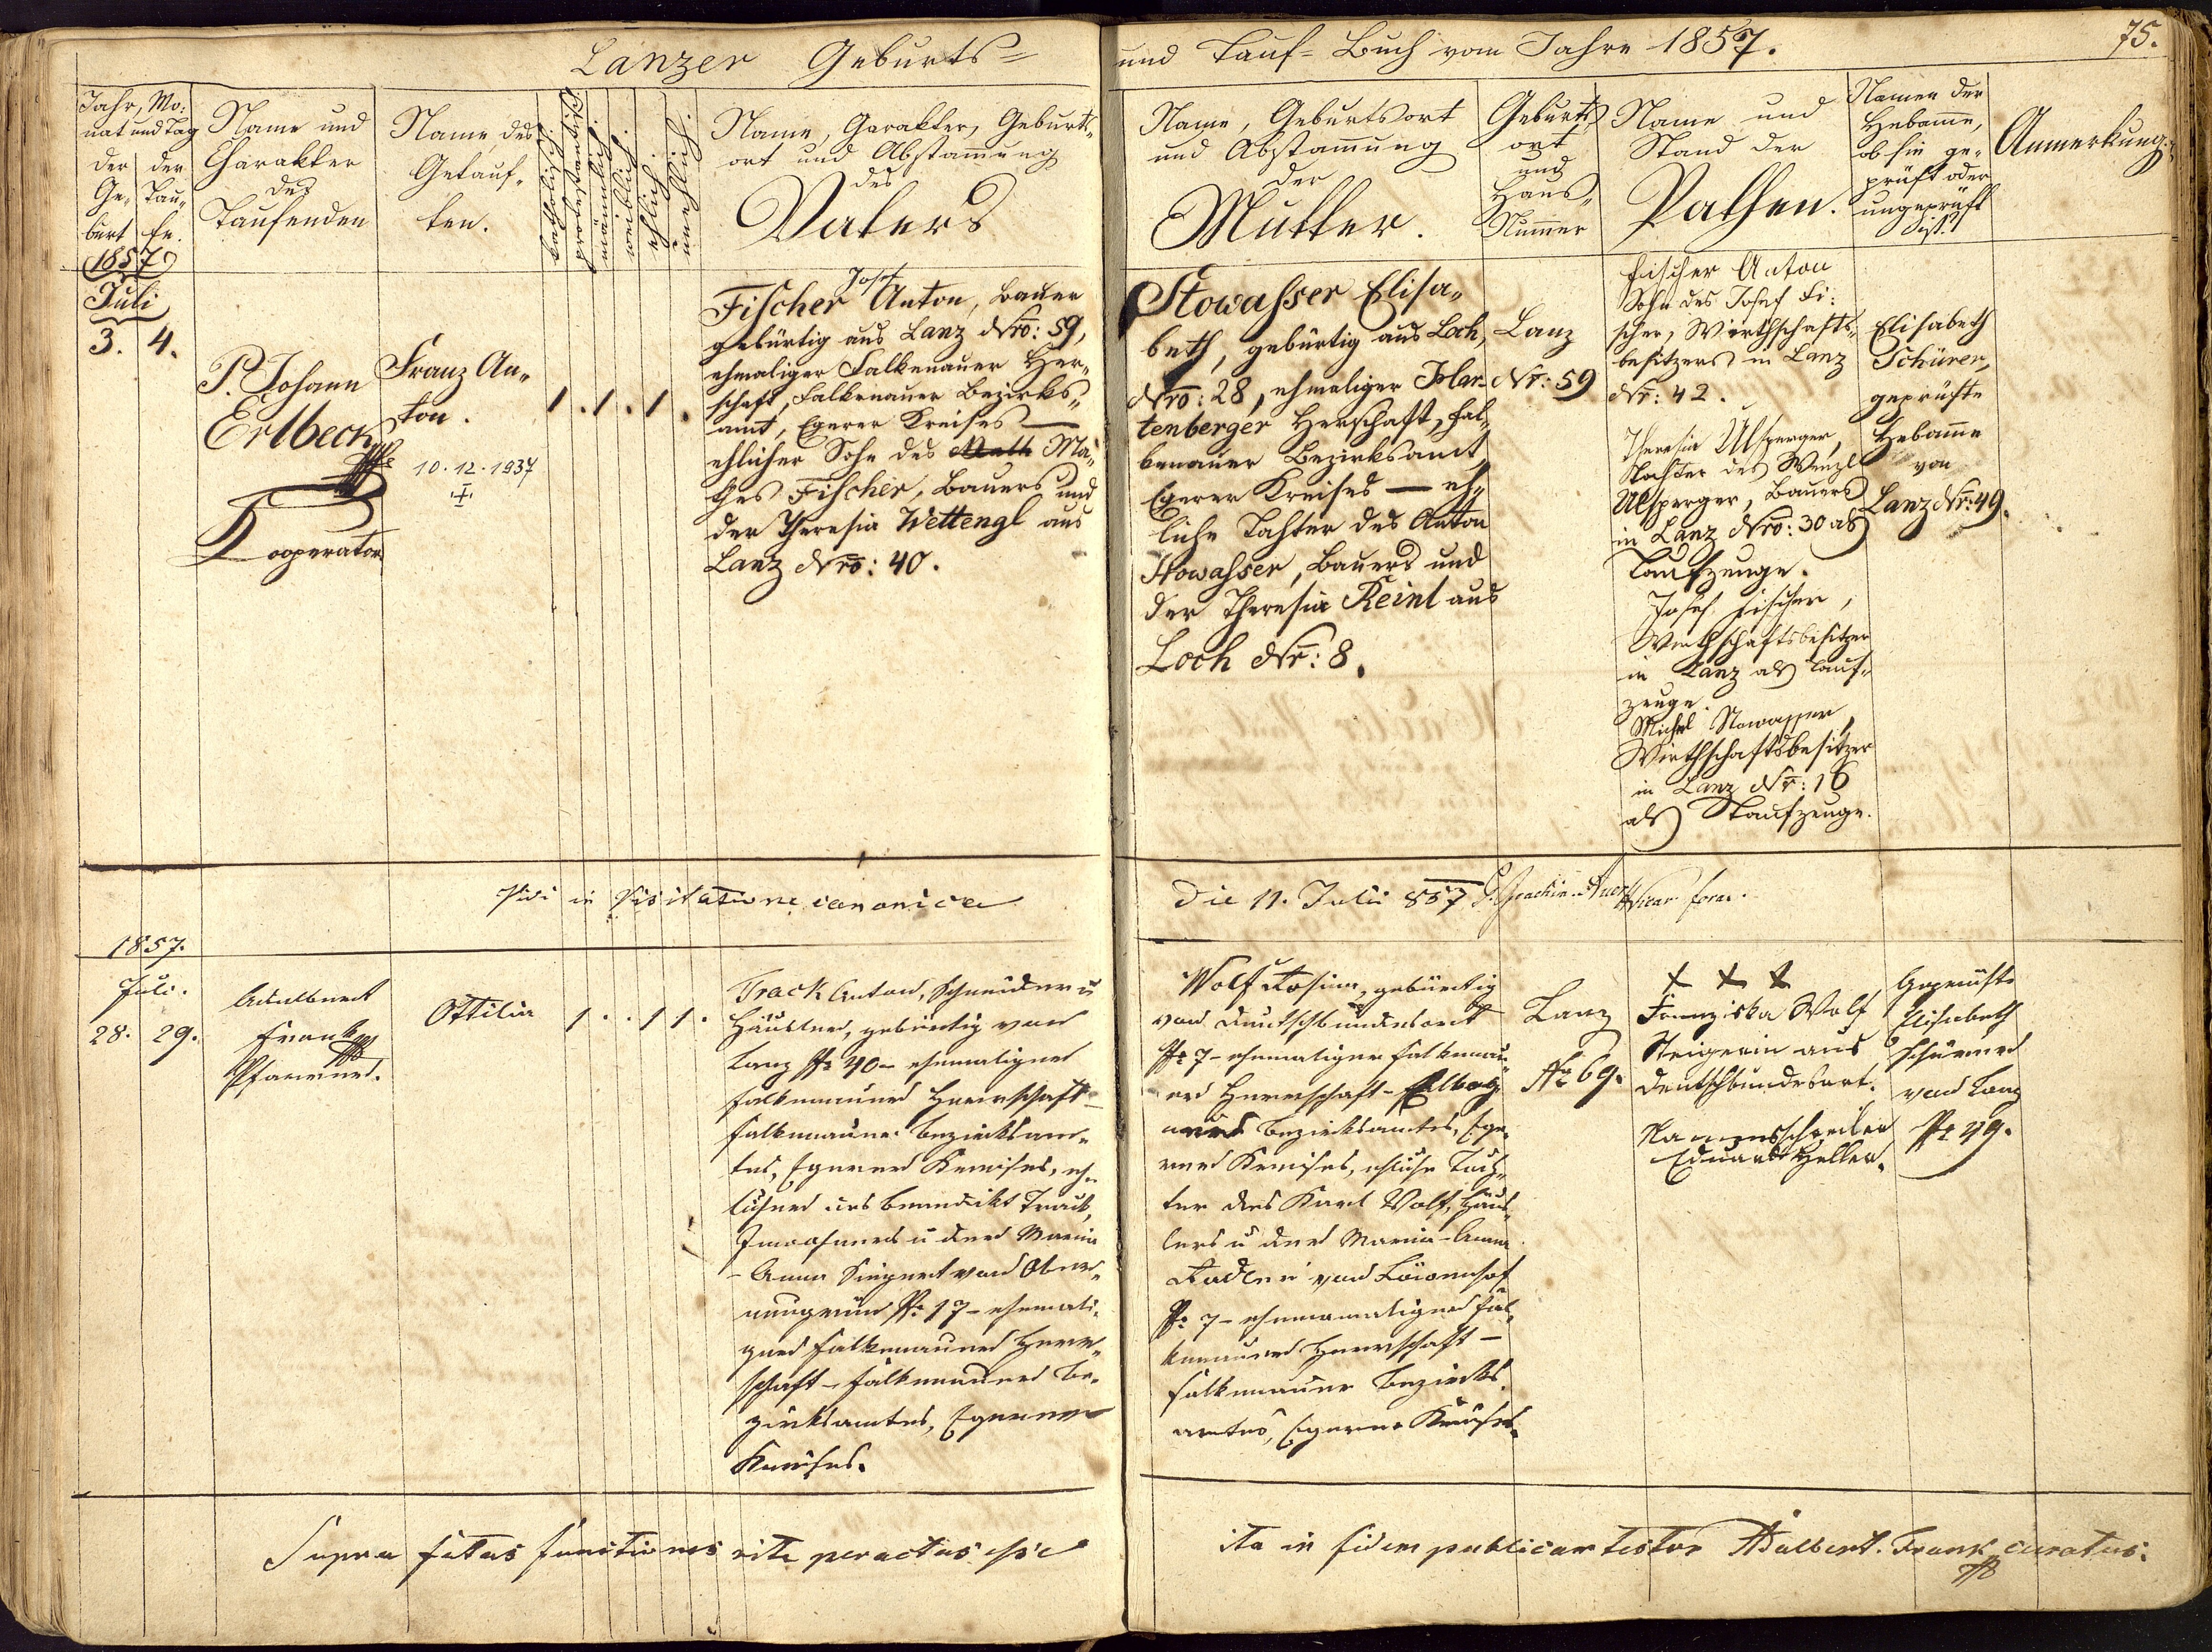 Lanzer Geburts=
und Tauf=Buch vom Jahre 1857.
75.
Jahr, Mo:
nat und Tag
der Ge-
burt
der
Tau-
fe.
Name und
Charakter
des
Taufenden
Name des
Getauf-
ten.
katholisch.
protestantisch.
männlich.
weiblich.
ehlich.
unehlich.
Name, Carakter, Geburts-
ort und Abstam̄ung
des
Vaters
Name, Geburtsort
und Abstam̄ung
der
Mutter.
Geburts
ort
und
Haus-
Num̄er
Name und
Stand der
Pathen.
Namen der
Hebam̄e,
ob sie ge-
prüft oder
ungeprüft
ist.
Anmerkung.
1857
Juli
3. 4.
P. Johann
Erlbeck
Cooperator
Franz An-
ton.
10.12.1937
1 . 1 . 1 .
Josef
Fischer Anton, Bauer
gebürtig aus Lanz Nro: 59,
ehmaliger Falkenauer Her-
schaft, Falkenauer Bezirks-
amt, Egerer Kreises —
ehlicher Sohn des Math Ma-
thes Fischer, Bauers und
der Theresia Wettengl aus
Lanz Nro: 40.
Stowasser Elisa-
beth, gebürtig aus Loch,
Nro: 28, ehmaliger Har-
tenberger Herschaft, Fal-
kenauer Bezirksamt,
Egerer Kreises — eh-
liche Tochter des Anton
Stowasser, Bauers und
der Theresia Reinl aus
Loch Nr: 8.
Lanz
Nr: 59
Fischer Anton
Sohn des Josef Fi-
scher, Wirthschafts-
besitzers in Lanz
Nr: 42.
Theresia Ulsperger,
Tochter des Wenzl
Ulsperger, Bauers
in Lanz Nro: 30 als
Taufzeuge.
Josef Fischer,
Wirthschaftsbesitzer
in Lanz als Tauf-
zeuge.
Michel Stowasser,
Wirthschaftsbesitzer
in Lanz Nr: 16
als Taufzeuge.
Elisabeth
Schürer,
geprüfte
Hebam̄e
von
Lanz Nr: 49.
Vidi in Visitatione canonica
Die 11. Julii 857
Vicar. foran.
1857.
Juli.
28. 29.
Adalbert
Frank
Pfarrer.
Ottilia
1 . . 1 1 .
Track Anton, Schneider u
Häusler, gebürtig von
Lanz No 40 - ehemaliger
Falkenauer Herrschaft -
Falkenauer Bezirksam-
tes, Egerer Kreises, eh-
licher des Benedikt Track,
Inwohners u der Maria
- Anna Siegert von Ober-
neugrün No 17 - ehemali-
ger Falkenauer Herr-
schaft - Falkenauer Be-
zirksamtes, Egerer
Kreises.
Wolf Rosina, gebürtig
von Deutschbundesort
No 7 - ehemaliger Falkenau-
er Herrschaft -
Bezirksamtes, Ege-
rer Kreises, ehliche Toch-
ter des Karl Wolf, Häus-
lers u der Maria - Anna
von
No 7 - ehemamaliger Fal-
kenauer Herrschaft -
Falkenauer Bezirks-
amtes, Egerer Kreises.
Lanz
No 69.
+ + +
Franziska Wolf
Steigerin aus
Deutschbundesort.
Namensschreiber
Eduard Heller.
Geprüfte
Elisabeth
Schürer
von Lanz
No 49.
Supra fatas functiones rite peractas esse
ita in fidem publicam testor Adalbert. Frank curatus.